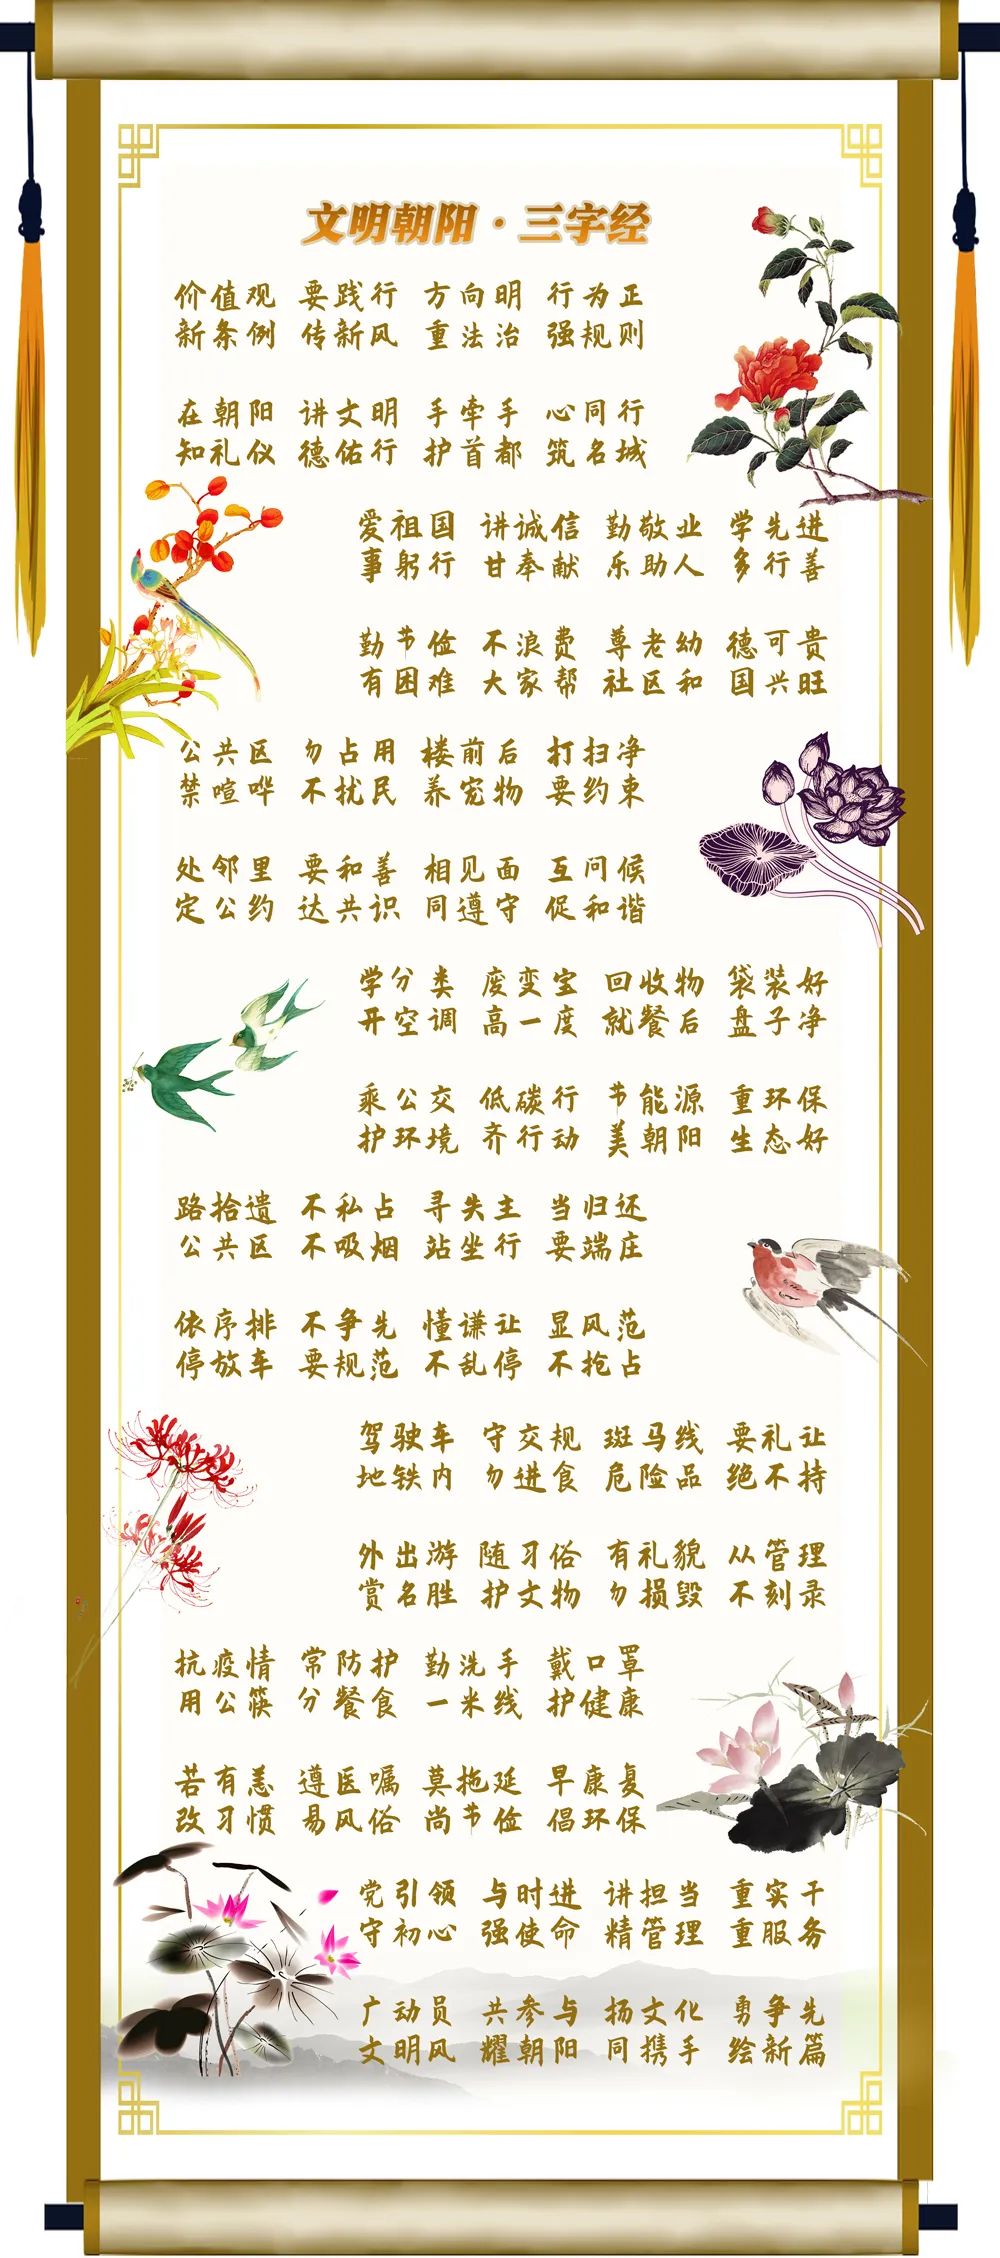 文明朝阳·三字经
价值观 要践行 方向明 行为正
新条例 传新风 重法治 强规则
在朝阳 讲文明 手牵手 心同行
知礼仪 德佑行 护首都 筑名城
爱祖国 讲诚信 勤敬业 学先进
事躬行 甘奉献 乐助人 多行善
勤节俭 不浪费 尊老幼 德可贵
有困难 大家帮 社区和 国兴旺
公共区 勿占用 楼前后 打扫净
禁喧哗 不扰民 养宠物 要约束
处邻里 要和善 相见面 互问候
定公约 达共识 同遵守 促和谐
学分类 废变宝 回收物 袋装好
开空调 高一度 就餐后 盘子净
乘公交 低碳行 节能源 重环保
护环境 齐行动 美朝阳 生态好
路拾遗 不私占 寻失主 当归还
公共区 不吸烟 站坐行 要端庄
依序排 不争先 懂谦让 显风范
停放车 要规范 不乱停 不抢占
驾驶车 守交规 斑马线 要礼让
地铁内 勿进食 危险品 绝不持
外出游 随习俗 有礼貌 从管理
赏名胜 护文物 勿损毁 不刻录
抗疫情 常防护 勤洗手 戴口罩
用公筷 分餐食 一米线 护健康
若有恙 遵医嘱 莫拖延 早康复
改习惯 易风俗 尚节俭 倡环保
党引领 与时进 讲担当 重实干
守初心 强使命 精管理 重服务
广动员 共参与 扬文化 勇争先
文明风 耀朝阳 同携手 绘新篇